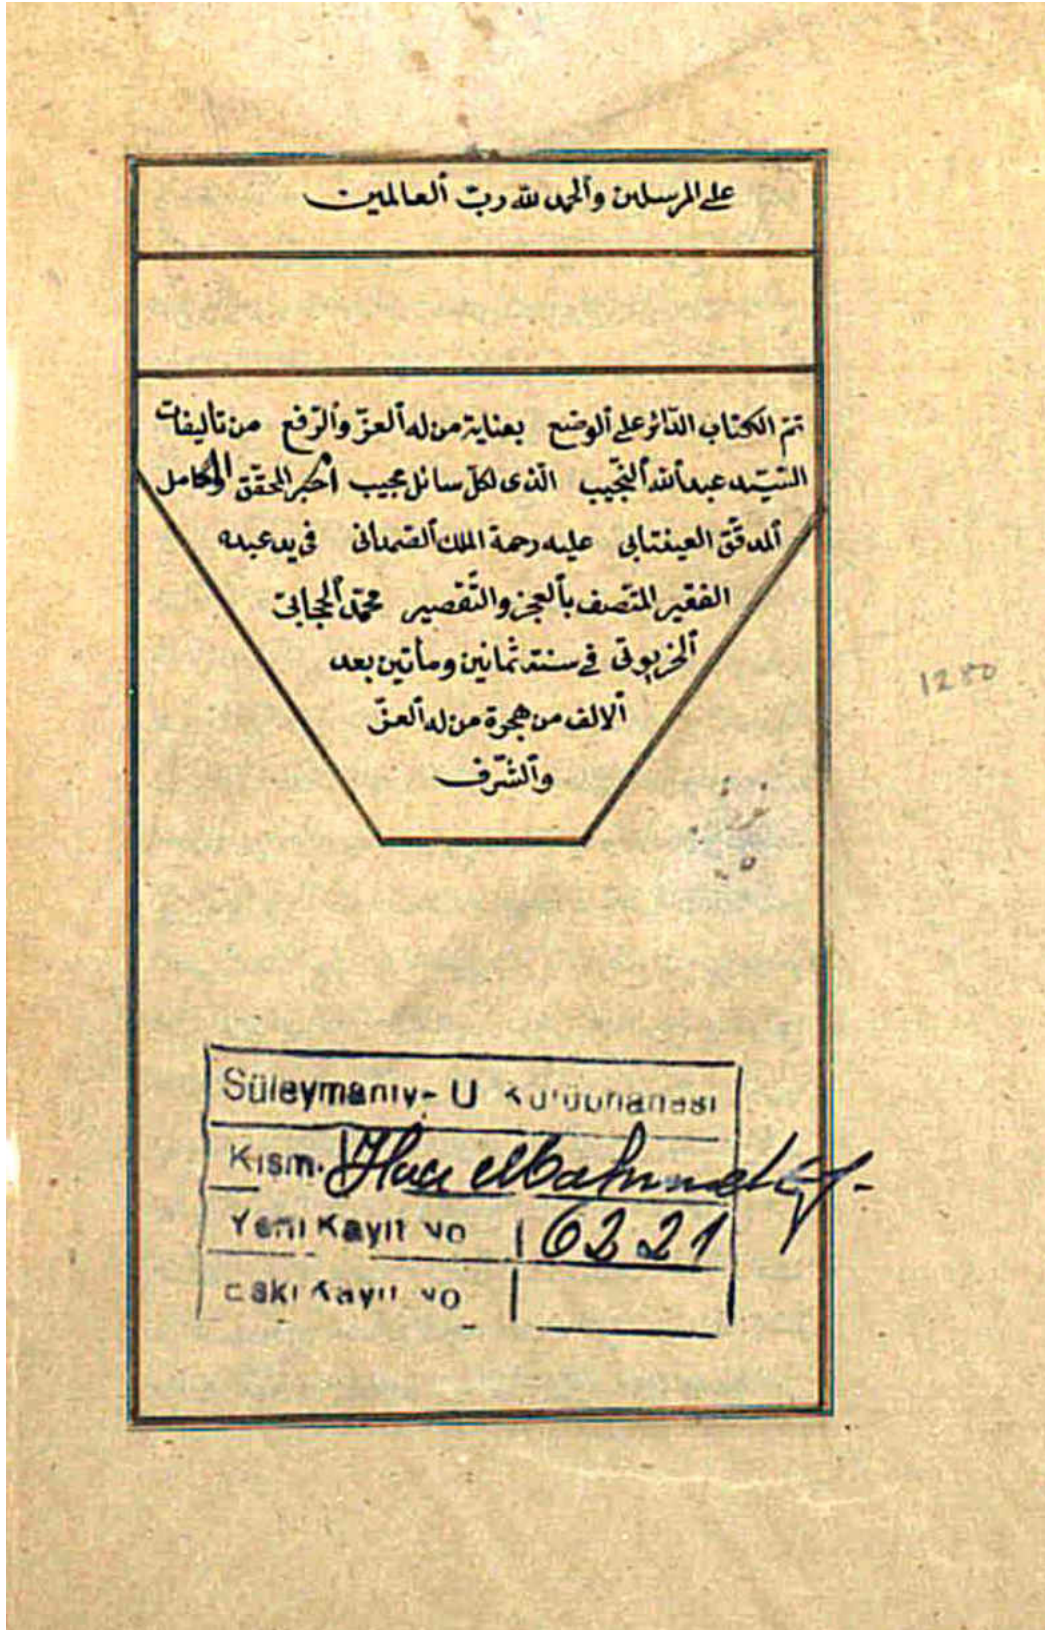 على المرسلين والحمد لله ربّ العالمين
تم الكتاب الدّائر على الوضع بعناية من له العزّ والرّفع من تأليفات
السّيّد عبد الله النّجيب الّذى لكلّ سائل مجيب المحقّق الكامل
المدقّق العينتابى عليه رحمة الملك الصّمدانى فى يد عبده
الفقير المتّصف بالعجز والتّقصير محمّد
الخربوتى فى سنة ثمانين ومأتين بعد
الالف من هجرة من له العزّ
والشّرف
1280
Süleymaniye U Kütüphanesi
Kısmı Hacı Mahmut Ef.
Yeni Kayıt No 6221
Eski Kayıt No